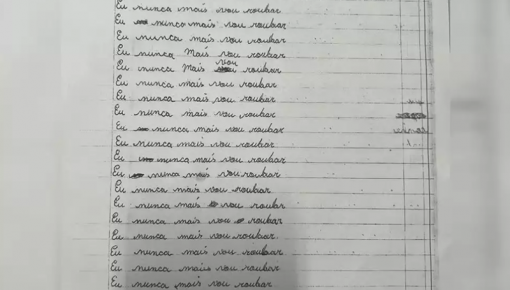 Eu nunca mais vou roubar
Eu nunca mais vou roubar
Eu nunca mais vou roubar
Eu nunca Mais vou roubar
Eu nunca Mais vou roubar
Eu nunca mais vou roubar
Eu nunca mais vou roubar
Eu nunca mais vou roubar
Eu nunca mais vou roubar
Eu nunca mais vou roubar
Eu nunca mais vou roubar
Eu nunca mais vou roubar
Eu nunca mais vou roubar
Eu nunca mais vou roubar
Eu nunca mais vou roubar
Eu nunca mais vou roubar.
Eu nunca mais vou roubar
Eu nunca mais vou roubar
Eu nunca mais vou roubar